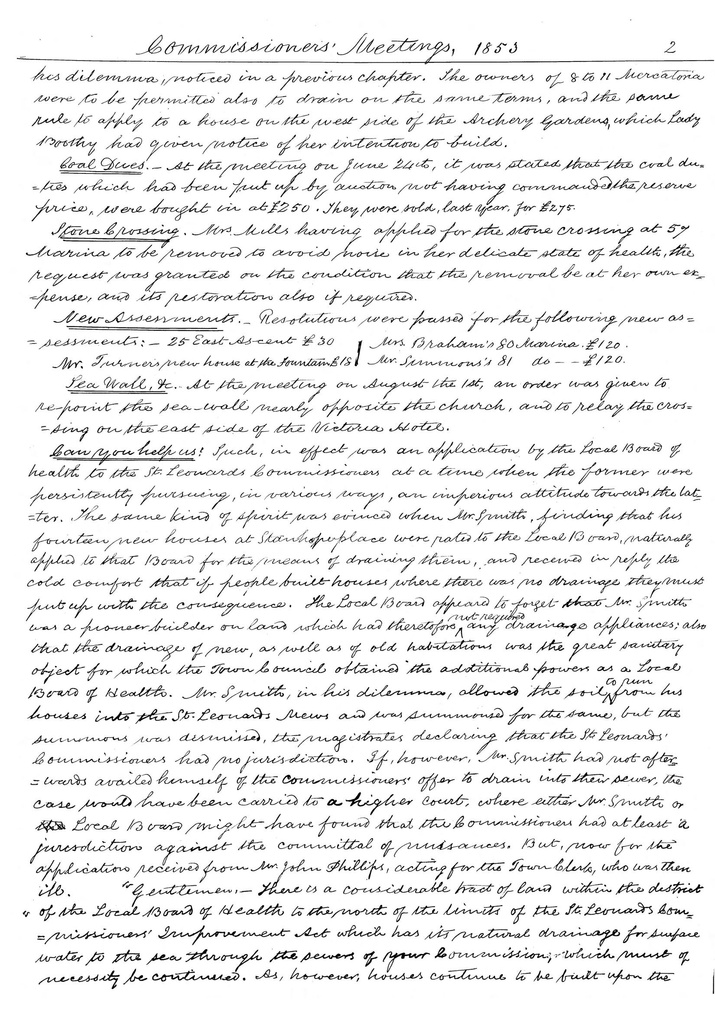 Commissioners' Meetings, 1853 2
his dilemma, noticed in a previous chapter. The owners of 8 to 11 Mercatoria
were to be permitted also to drain on the same terms, and the same
rule to apply to a house on the west side of the Archery Gardens, which Lady
Boothy had given notice of her intention to build.
Coal Dues. – At the meeting on June 24th, it was stated that the coal du=
=ties which had been put up by auction not having commanded the reserve
price, were bought in at £250. They were sold, last year, for £275.
Stone Crossing. Mrs. Mills having applied for the stone crossing at 57
Marina to be removed to avoid noise in her delicate state of health, the
request was granted on the condition that the removal be at her own ex=
=pense, and its restoration also if required.
New Assessments. – Resolutions were passed for the following new as=
=sessments: – 25 East Ascent £30 | Mrs. Braham's 80 Marina £120.
Mr. Turner's new house at the Fountain £18 | Mr. Simmons's 81 do – – £120.
Sea Wall, &c. At the meeting on August the 1st, an order was given to
re-point the sea-wall nearly opposite the church, and to relay the cros=
=sing on the east side of the Victoria Hotel.
Can you help us! Such, in effect was an application by the Local Board of
health to the St. Leonards Commissioners at a time when the former were
persistently pursuing, in various ways, an imperious attitude towards the lat=
=ter. The same kind of spirit was evinced when Mr. Smith, finding that his
fourteen new houses at Stanhope place were rated to the Local Board, naturally
applied to that Board for the means of draining them, and received in reply the
cold comfort that if people built houses where there was no drainage they must
put up with the consequence. The Local Board appeared to forget that Mr. Smith
was a pioneer builder on land which had theretofore not required any drainage appliances; also
that the drainage of new, as well as of old habitations was the great sanitary
object for which the Town Council obtained the additional powers as a Local
Board of Health. Mr. Smith, in his dilemma, allowed the soil to run from his
houses into the St. Leonards Mews and was summonsed for the same, but the
summons was dismissed, the magistrates declaring that the St. Leonards'
Commissioners had no jurisdiction. If, however, Mr. Smith had not after=
=wards availed himself of the commissioners' offer to drain into their sewer, the
case would have been carried to a higher court, where either Mr. Smith or
Local Board might have found that the Commissioners had at least a
jurisdiction against the committal of nuisances. But, now for the
application received from Mr. John Phillips, acting for the Town Clerk, who was then
ill. "Gentlemen, – There is a considerable tract of land within the district
" of the Local Board of Health to the north of the limits of the St. Leonards Com=
=missioners' Improvement Act which has its natural drainage for surface
water to the sea through the sewers of your Commission, which must of
necessity be continued. As, however, houses continue to be built upon the